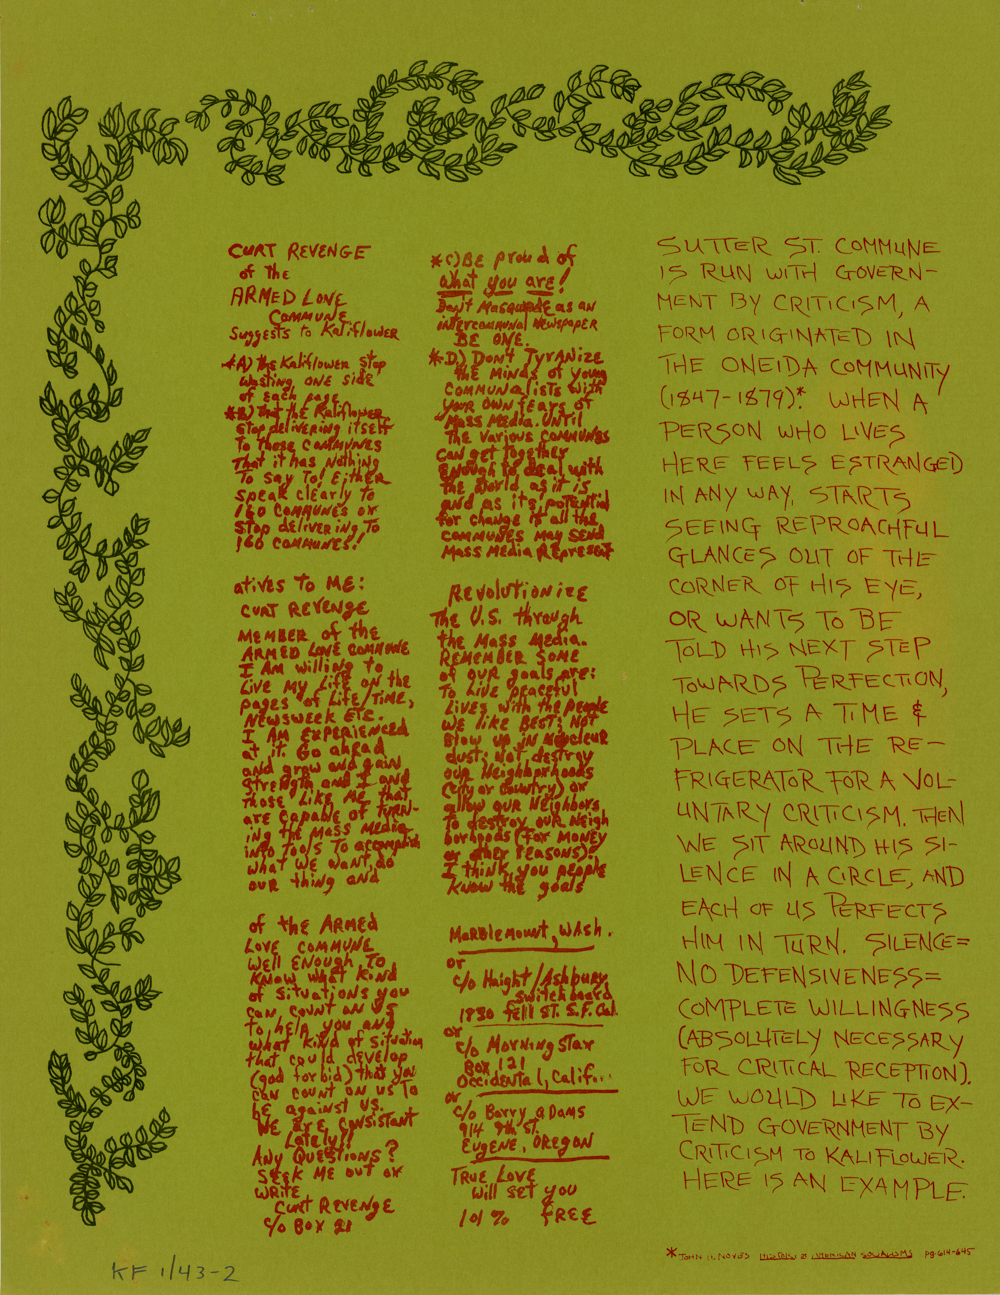 CURT REVENGE
of the
ARMED LOVE
COMMUNE
Suggests to Kaliflower
*A) the Kaliflower Stop
Wasting ONE side
of each page
*B) That the Kaliflower
Stop delivering itself
To those COMMUNES
That it has Nothing
To Say To! Either
Speak clearly to
160 COMMUNES or
Stop delivering To
160 COMMUNES!
*C) BE proud of
what you are!
Don't Masquerade as an
intercommunal Newspaper
BE ONE.
*D.) Don't TyrANize
the Minds of young
COMMUNalists with
your OWN fears of
Mass Media. UNtil
The various COMMUNES
can get together
ENough to deal with
the World as it is
and as its potential
for change is all the
COMMUNES May SENd
Mass Media Represent
atives to ME:
CURT REVENGE
MEMBER of the
ARMED LOVE COMMUNE
I AM willing to
Live My Life ON the
pages of Life/Time,
Newsweek ETC.
I AM EXPERIENCED
at it. Go ahead
and grow and gain
Strength and I and
Those Like ME That
are Capable of TURN-
ing the Mass Media
into Tools To accomplish
What WE Want, do
our thing and
Revolutionize
The U.S. through
the Mass Media.
REMEMBER SOME
of our goals are:
To Live peaceful
Lives with the people
WE like BEST; Not
Blow up IN Nucleur
dust; Not destroy
our Neighborhoods
(City or Country) or
allow our Neighbors
To destroy our Neigh
borhoods (For MONEY
or other reasons)!
I think you people
KNOW the goals
of the ARMEd
LOVE COMMUNE
Well ENough To
KNOW what kind
of Situations you
can count on us
to help you and
what Kind of Situation
that could develop
(god forbid) that you
can count on us To
be against us.
WE are consistant
Lately!!
Any Questions?
SEEK ME out or
WRITE
Curt Revenge
c/o BOX 21
Marblemount, Wash.
or
c/o Haight/Ashbury
Switchboard
1830 fell ST. S.F. Cal.
or
c/o Morning Star
Box 121
Occidental, Calif..
or
c/o Barry aDams
914 9th St.
Eugene, Oregon
TRUE LOVE
Will set you
101% fREE
SUTTER ST. COMMUNE
IS RUN WITH GOVERN-
MENT BY CRITICISM, A
FORM ORIGINATED IN
THE ONEIDA COMMUNITY
(1847-1879).* WHEN A
PERSON WHO LIVES
HERE FEELS ESTRANGED
IN ANY WAY, STARTS
SEEING REPROACHFUL
GLANCES OUT OF THE
CORNER OF HIS EYE,
OR WANTS TO BE
TOLD HIS NEXT STEP
TOWARDS PERFECTION,
HE SETS A TIME &
PLACE ON THE RE-
FRIGERATOR FOR A VOL-
UNTARY CRITICISM. THEN
WE SIT AROUND HIS SI-
LENCE IN A CIRCLE, AND
EACH OF US PERFECTS
HIM IN TURN. SILENCE=
NO DEFENSIVENESS=
COMPLETE WILLINGNESS
(ABSOLUTELY NECESSARY
FOR CRITICAL RECEPTION).
WE WOULD LIKE TO EX-
TEND GOVERNMENT BY
CRITICISM TO KALIFLOWER.
HERE IS AN EXAMPLE.
*JOHN H. NOYES HISTORY of AMERICAN SOCIALISMS pg. 614-645
KF 1/43-2